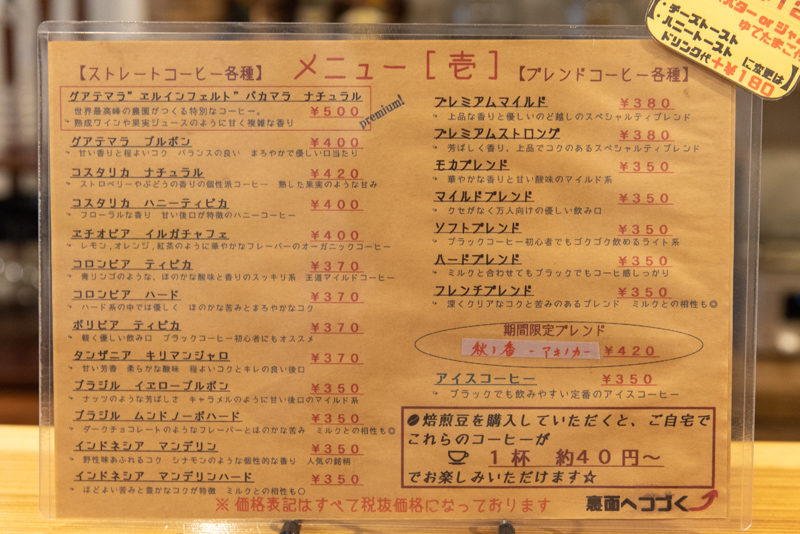 メニュー［壱］
【ストレートコーヒー各種】
グアテマラ”エルインフェルト”パカマラ ナチュラル
世界最高峰の農園がつくる特別なコーヒー。 ¥500
熟成ワインや果実ジュースのように甘く複雑な香り
premium!
グアテマラ ブルボン ¥400
甘い香りと程よいコク バランスの良い まろやかで優しい口当たり
コスタリカ ナチュラル ¥420
ストロベリーやぶどうの香りの個性派コーヒー 熟した果実のような甘み
コスタリカ ハニーティピカ ¥400
フローラルな香り 甘い後口が特徴のハニーコーヒー
エチオピア イルガチャフェ ¥400
レモン,オレンジ,紅茶のように華やかなフレーバーのオーガニックコーヒー
コロンビア ティピカ ¥370
青リンゴのような、ほのかな酸味と香りのスッキリ系 王道マイルドコーヒー
コロンビア ハード ¥370
ハード系の中では優しく ほのかな苦みとまろやかなコク
ボリビア ティピカ ¥370
軽く優しい飲み口 ブラックコーヒー初心者にもオススメ
タンザニア キリマンジャロ ¥370
甘い芳香 柔らかな酸味 程よいコクとキレの良い後口
ブラジル イエローブルボン ¥350
ナッツのような芳ばしさ キャラメルのように甘い後口のマイルド系
ブラジル ムンドノーボハード ¥350
ダークチョコレートのようなフレーバーとほのかな苦み ミルクとの相性も◎
インドネシア マンデリン ¥350
野性味あふれるコク シナモンのような個性的な香り 人気の銘柄
インドネシア マンデリンハード ¥350
ほどよい苦みと豊かなコクが特徴 ミルクとの相性も○
【ブレンドコーヒー各種】
プレミアムマイルド ¥380
上品な香りと優しいのど越しのスペシャルティブレンド
プレミアムストロング ¥380
芳ばしく香り、上品でコクのあるスペシャルティブレンド
モカブレンド ¥350
華やかな香りと甘い酸味のマイルド系
マイルドブレンド ¥350
クセがなく万人向けの優しい飲み口
ソフトブレンド ¥350
ブラックコーヒー初心者でもゴクゴク飲めるライト系
ハードブレンド ¥350
ミルクと合わせてもブラックでもコーヒ感しっかり
フレンチブレンド ¥350
深くクリアなコクと苦みのあるブレンド ミルクとの相性も◎
期間限定ブレンド
秋ノ香 - アキノカ - ¥420
アイスコーヒー ¥350
ブラックでも飲みやすい定番のアイスコーヒー
焙煎豆を購入していただくと、ご自宅で
これらのコーヒーが
1杯 約40円～
でお楽しみいただけます☆
※価格表記はすべて税抜価格になっております
裏面へつづく
ゆでたまご
チーズトースト
ハニートースト に変更は
ドリンク代+¥180